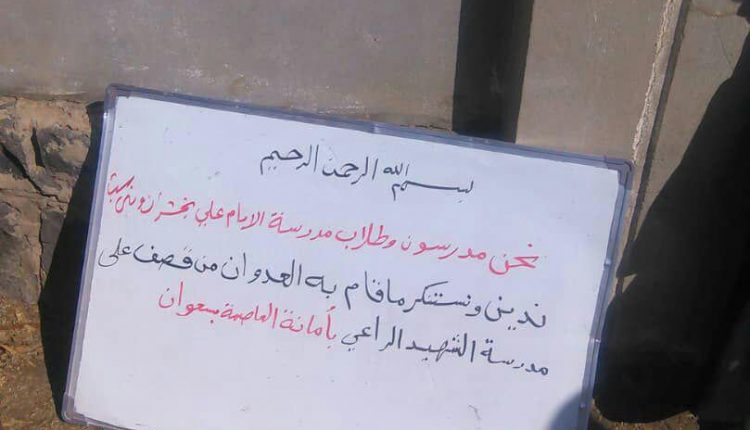 بسم الله الرحمن الرحيم
نحن مدرسون وطلاب مدرسة الإمام علي
ندين ونستنكر ما قام به العدوان من قصف على
مدرسة الشهيد الراعي بأمانة العاصمة بسعوان